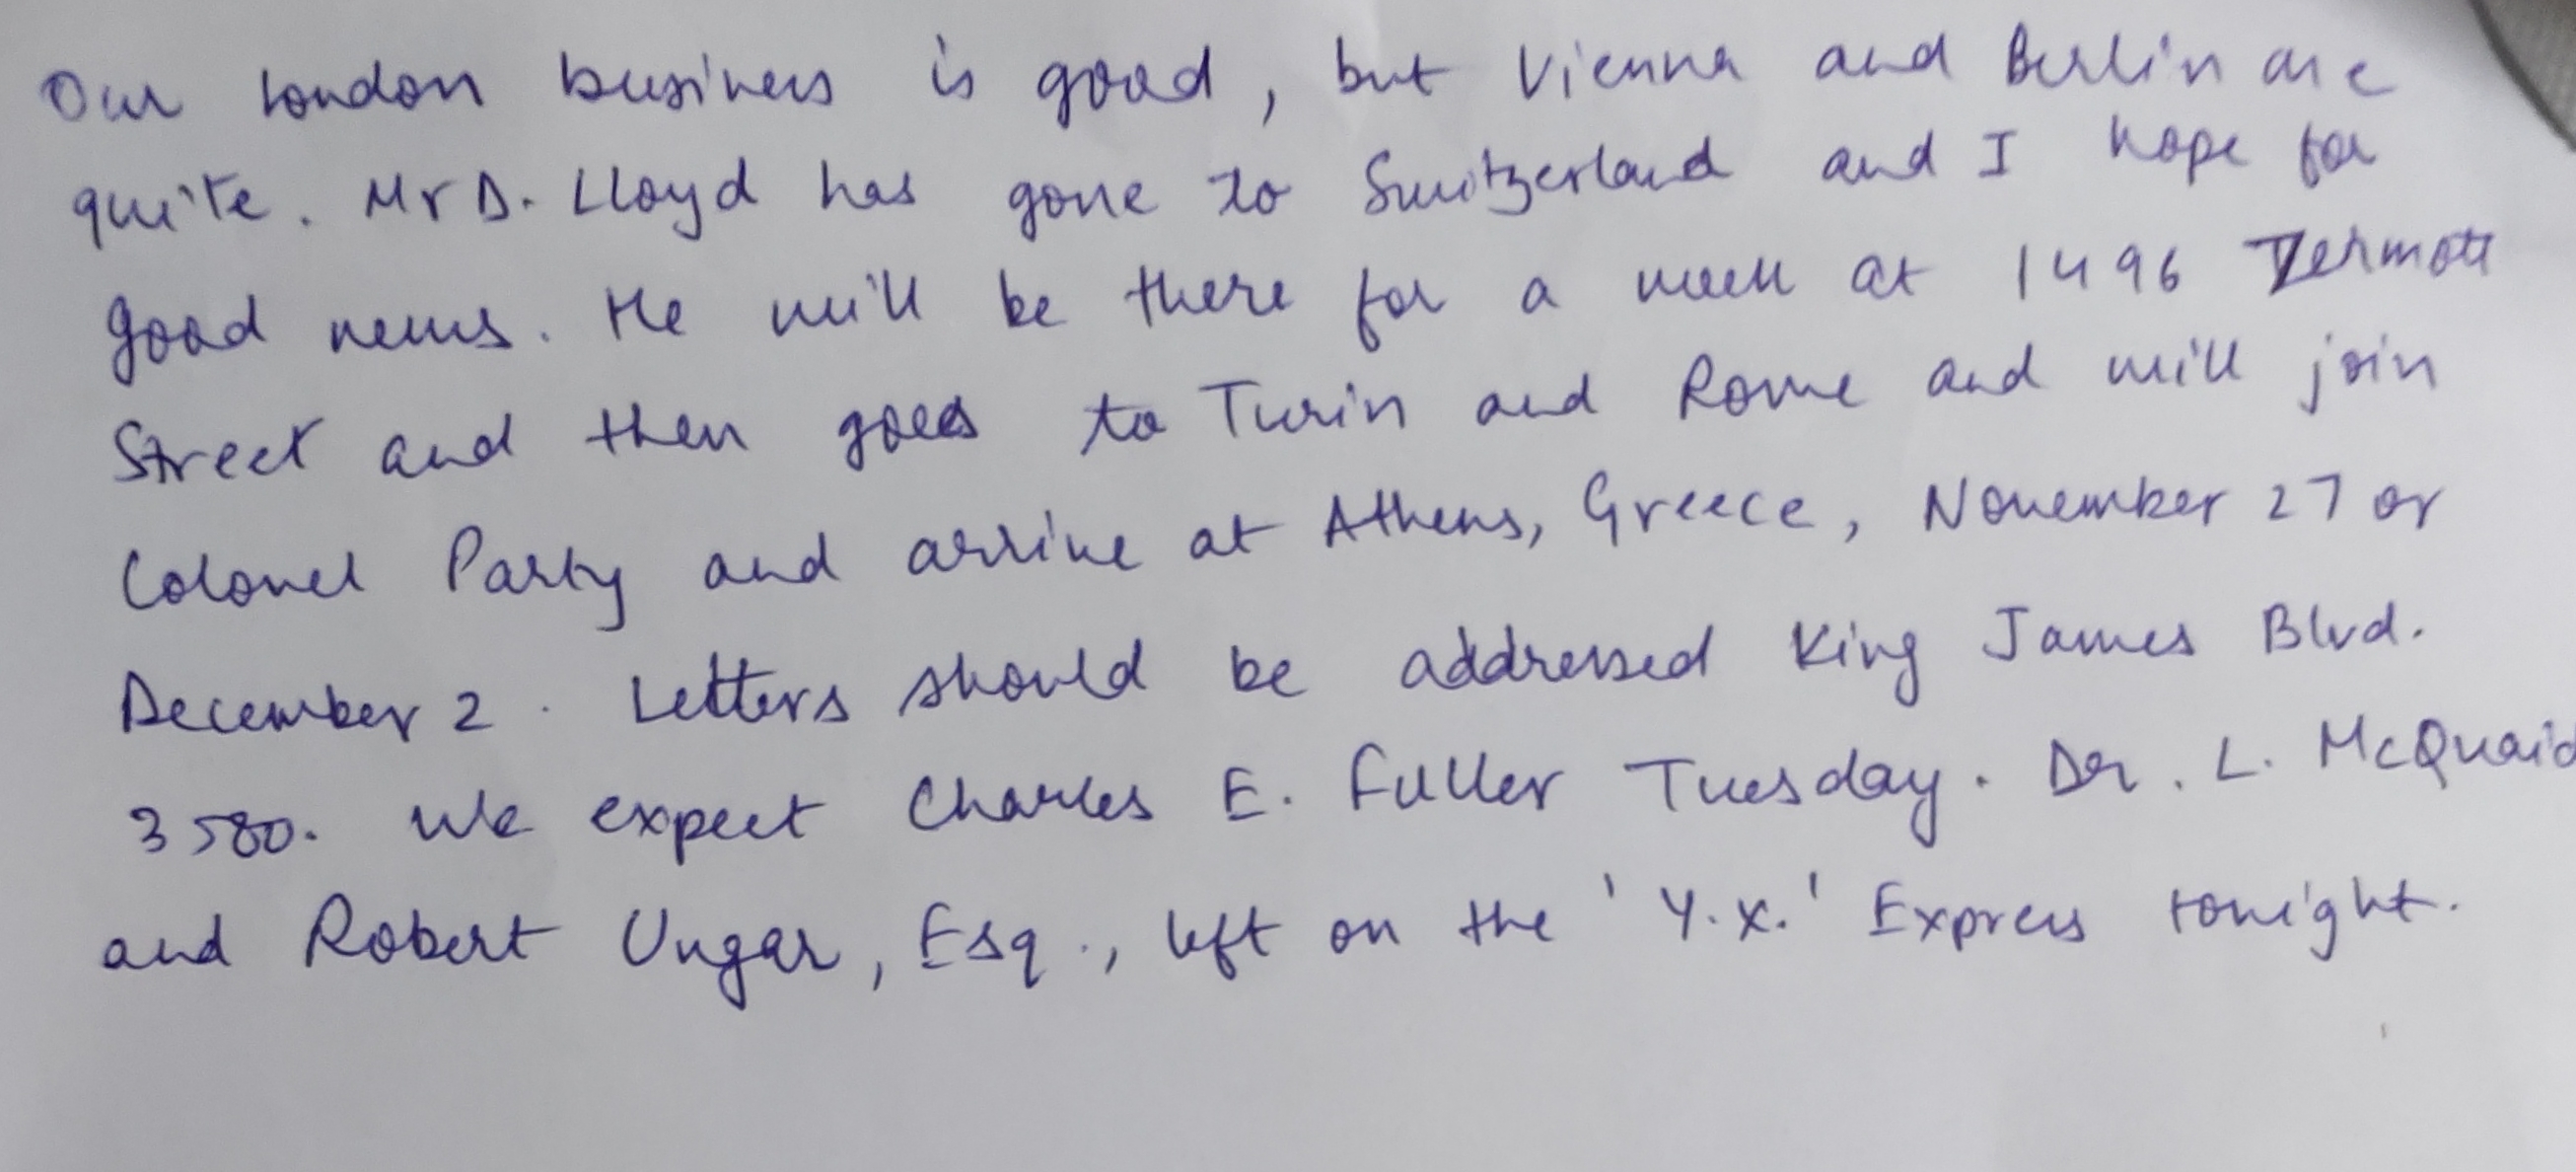 Our London business is good, but Vienna and Berlin are
quite. Mr D. Lloyd has gone to Switzerland and I hope for
good news. He will be there for a week at 1496 Zermott
Street and then goes to Turin and Rome and will join
Colonel Party and arrive at Athens, Greece, November 27 or
December 2. Letters should be addressed King James Blvd.
3580. We expect Charles E. Fuller Tuesday. Dr. L. McQuaid
and Robert Ungar, Esq., left on the 'Y.X.' Express tonight.